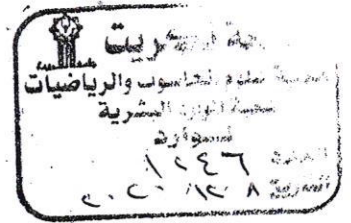 جامعة تكريت
كلية علوم الحاسوب والرياضيات
شعبة الموارد البشرية
الصادرة
العدد ١٢٤٦
التاريخ ٢٠٢٠/١٢/٨